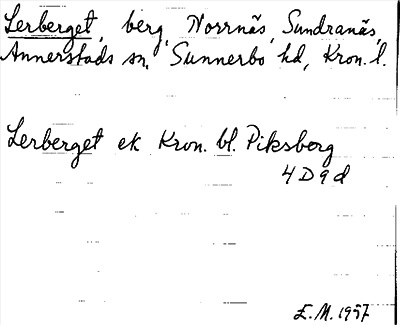 Lerberget, berg, Norrnäs, Sundranäs,
Annerstads sn, Sunnerbo hd, Kron. l.
Lerberget ek Kron. bl. Piksberg
4 D 9 d
E. M. 1957